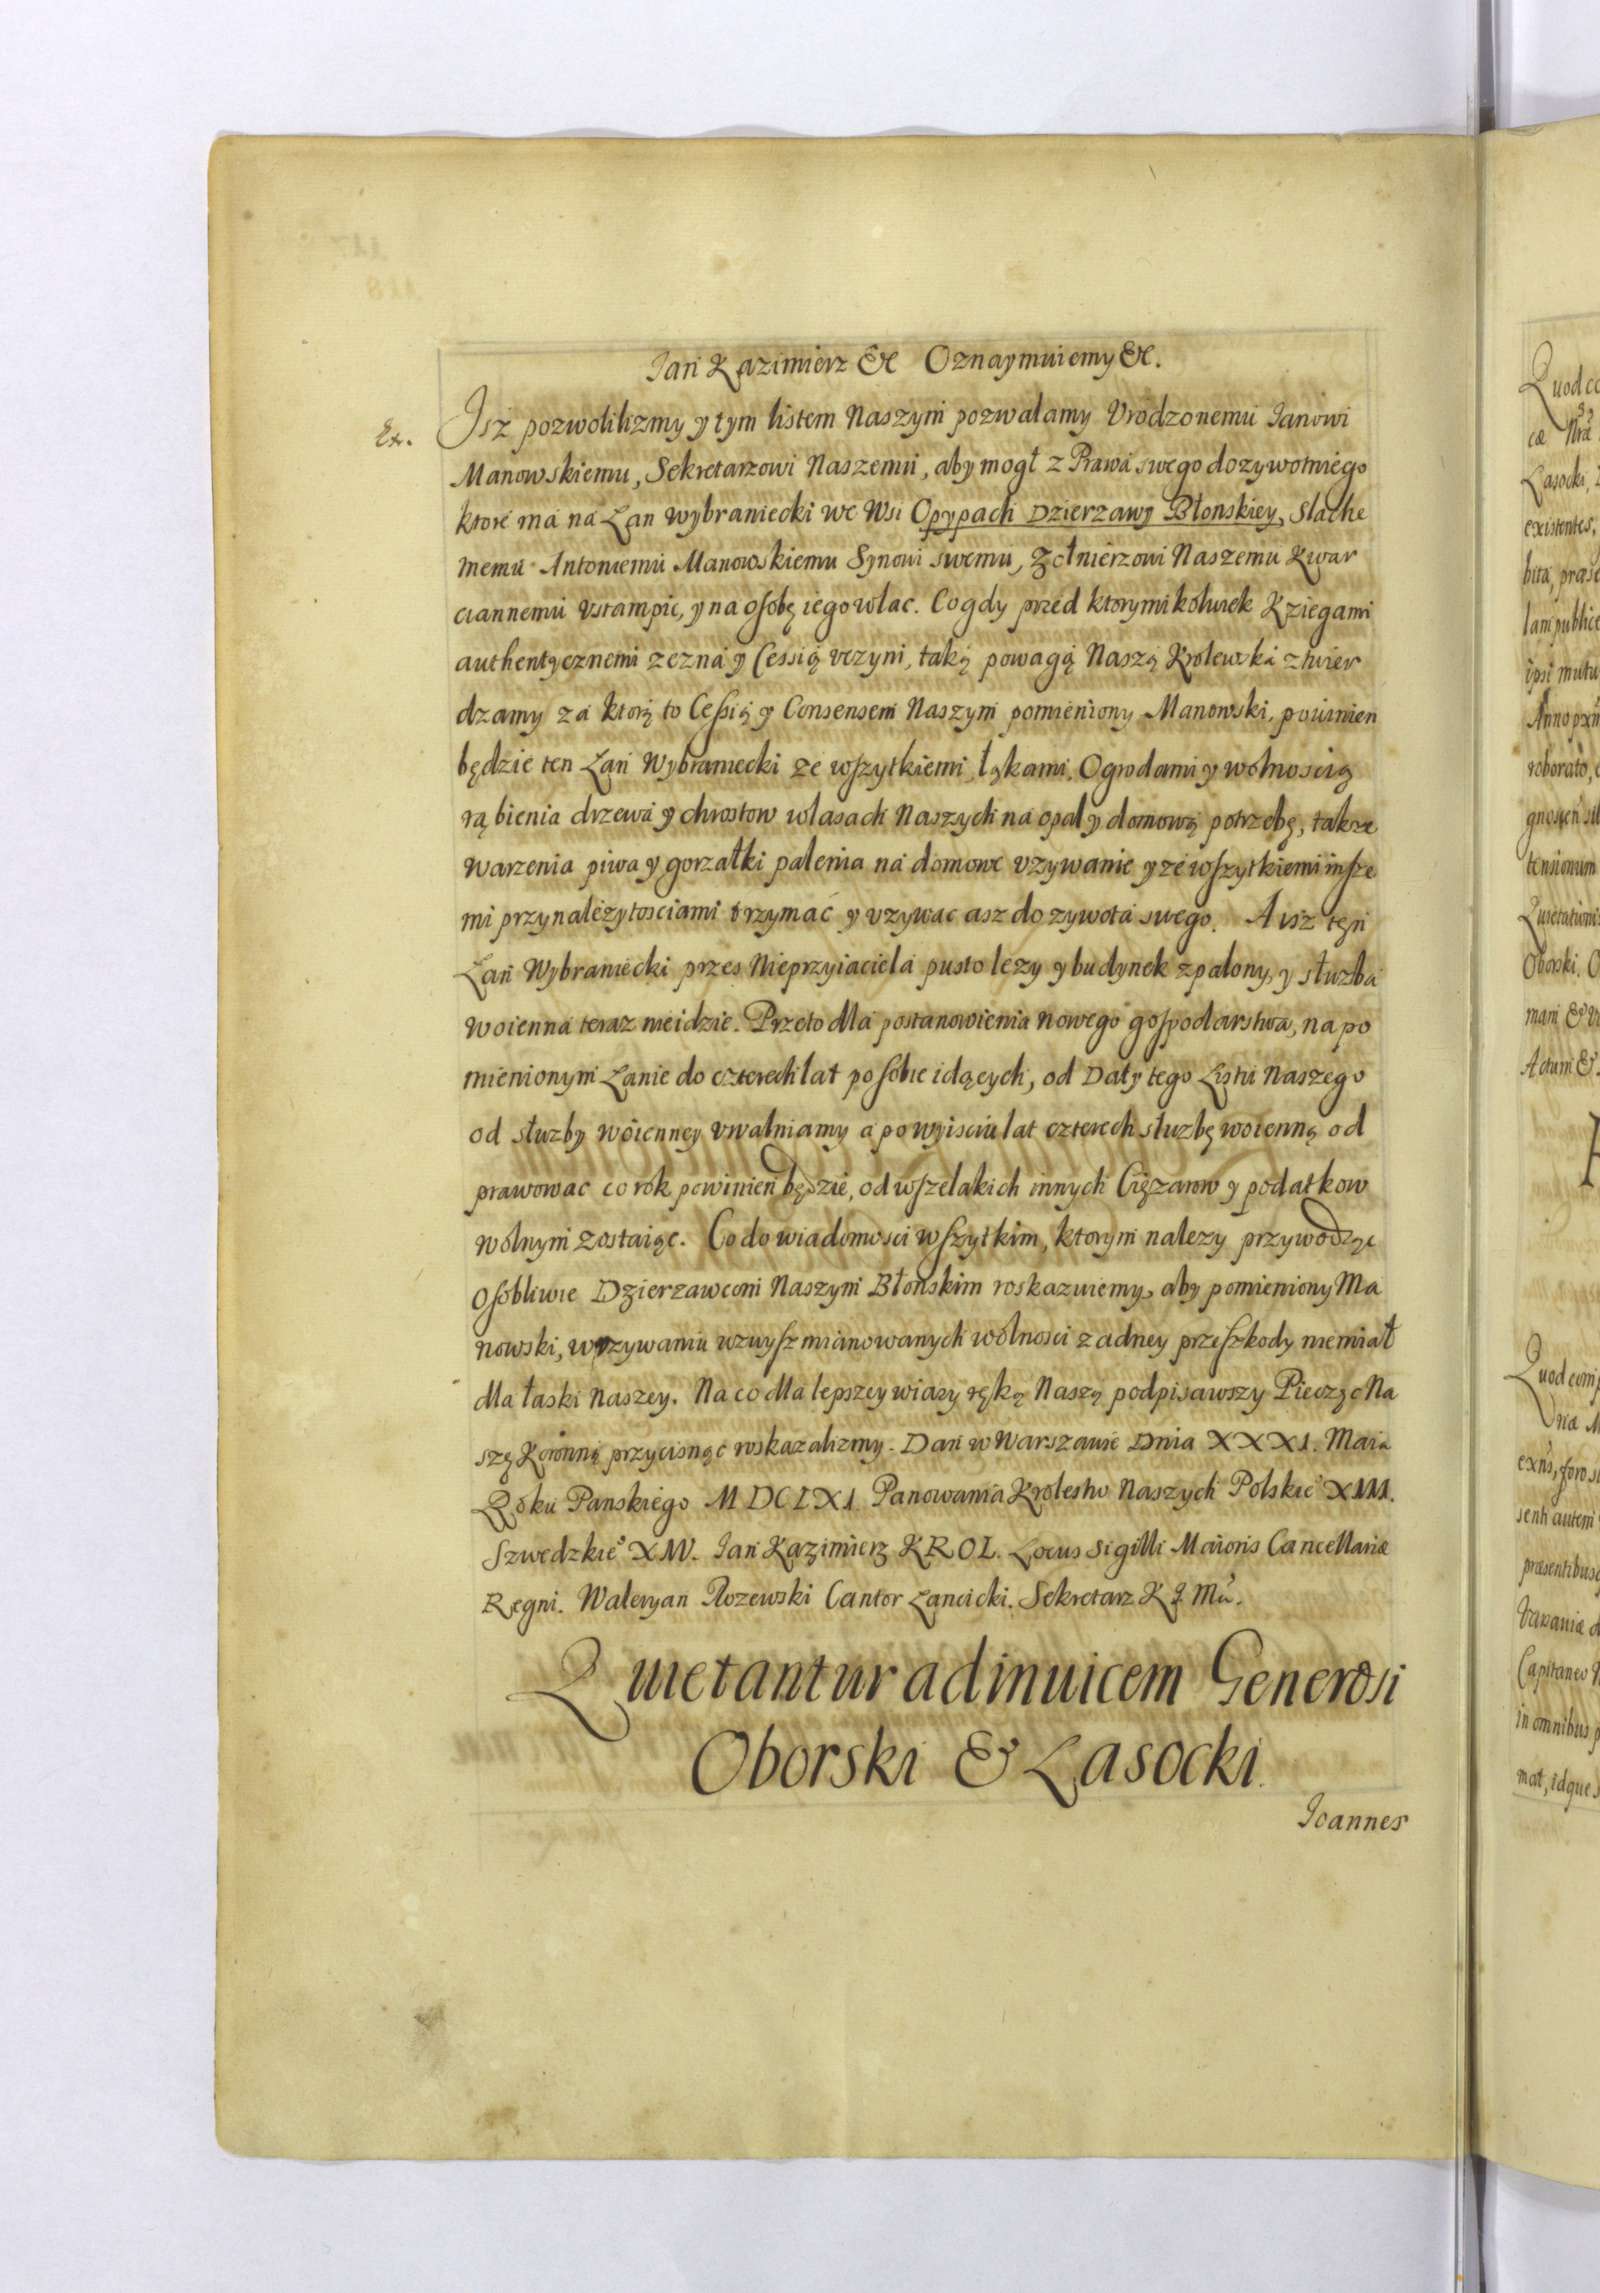 Jan Kazimierz &c Oznaymuiemy &c.
Ex. Jsz pozwolilizmy y tym listem Naszym pozwalamy Vrodzonemu Janowi
Manowskiemu, Sekretarzowi Naszemu, aby mogł z Prawa swego dozywotniego
ktore ma na Łan wybraniecki we Wsi Opypach Dzierzawy Błonskiey, Slache
tnemu Antoniemu Manowskiemu Synowi swemu, Zołnierzowi Naszemu Kwar
ciannemu vstąmpic, y na osobę iego wlac. Co gdy przed ktorymikolwiek Kziegami
authentycznemi zezna y Cessią vczyni, taką powagą Naszą Krolewską ztwier
dzamy za ktorą to Cessią y Consensem Naszym pomieniony Manowski, powinien
będzie ten Łan Wybraniecki ze wszytkiemi łąkami, Ogrodami y wolnoscią
rąbienia drzewa y chrostow w lasach Naszych na opal y domową potrzebę, takze
warzenia piwa y gorzałki palenia na domowe vzywanie y ze wszytkiemi insze
mi przynalezytosciami trzymać y vzywac asz do zywota swego. A isz tęn
Łan Wybraniecki przes Nieprzyiaciela pusto lezy y budynek zpalony, y słuzba
woienna teraz nieidzie. Przeto dla postanowienia nowego gospodarstwa, na po
mienionym Łanie do czterech lat po sobie idących, od Daty tego Listu Naszego
od słuzby woienney vwalniamy a po wyisciu lat czterech słuzbę woienną od
prawowac co rok powinien będzie, od wszelakich innych Cięzarow y podatkow
wolnym zostaiąc. Co do wiadomosci wszytkim, ktorym nalezy przywodząc
osobliwie Dzierzawcom Naszym Błonskim roskazuiemy, aby pomieniony Ma
nowski, w vzywaniu wzwysz mianowanych wolnosci zadney przeszkody niemiał
dla łaski Naszey. Na co dla lepszey wiary ręką Naszą podpisawszy Pieczęc Na
szę Koronną przycisnąc roskazalizmy. Dan w Warszawie Dnia XXXI. Maia
Roku Panskiego MDCLXI. Panowania Krolestw Naszych Polskie° XIII.
Szwedzkie° XIV. Jan Kazimierz KROL. Locus Sigilli Maioris Cancellariæ
Regni. Waleryan Rozewski Cantor Łancicki. Sekretarz K J Mci.
Quietantur adinuicem Generosi
Oborski & Lasocki.
Joannes